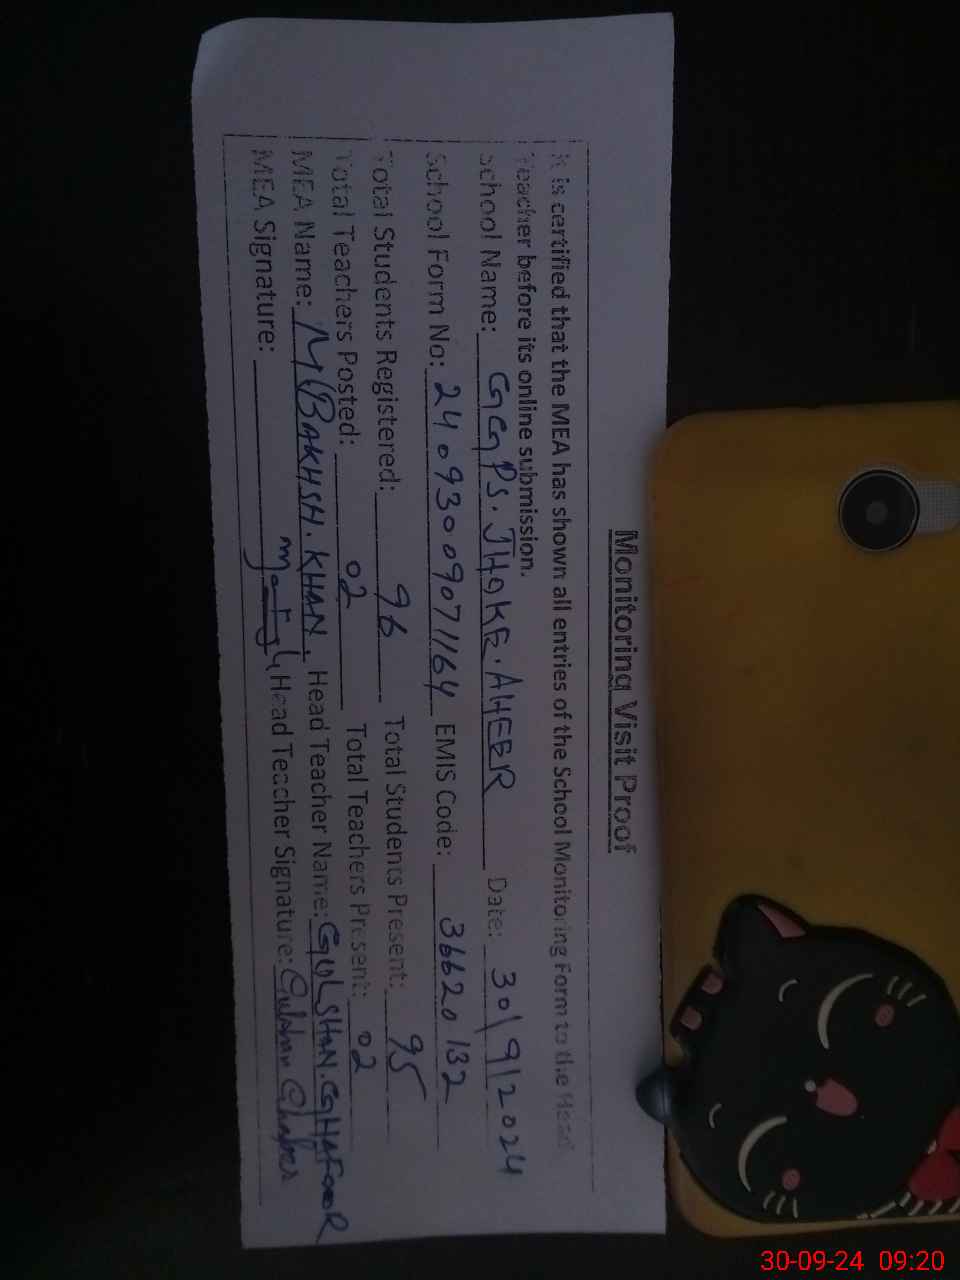 Monitoring Visit Proof
It is certified that the MEA has shown all entries of the School Monitoring Form to the Head
Teacher before its online submission.
School Name: GGPS. JHOKE. AHEER Date: 30/9/2024
School Form No: 24093009071164 EMIS Code: 36620132
Total Students Registered: 96 Total Students Present: 95
Total Teachers Posted: 02 Total Teachers Present: 02
MEA Name: M BAKHSH. KHAN. Head Teacher Name: GULSHAN. GHAFOOR
MEA Signature: Head Teacher Signature: Gulshan Ghafoor
30-09-24 09:20